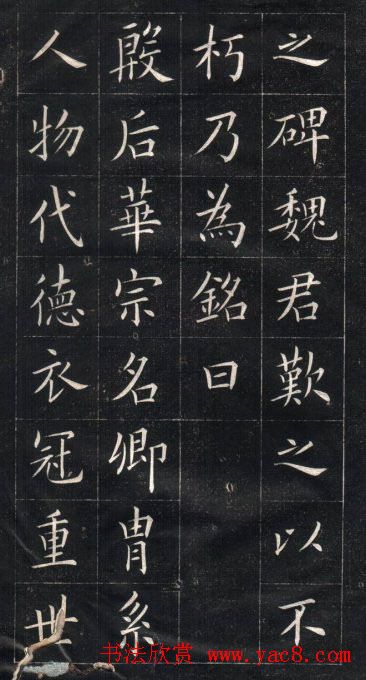 之碑魏君歎之以不
朽乃為銘曰
殷后華宗名卿胄系
人物代德衣冠重世
书法欣赏 www.yac8.com